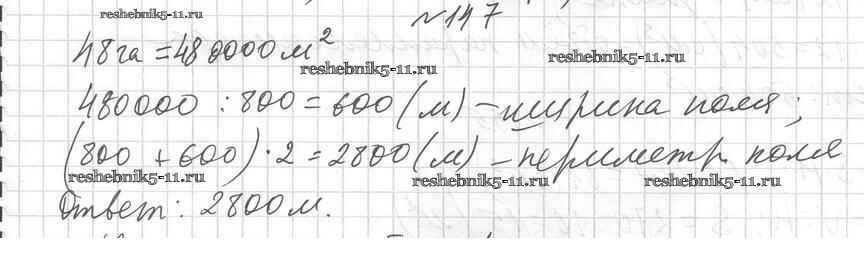 reshebnik5-11.ru
№ 147
48 га = 480000 м²
reshebnik5-11.ru
reshebnik5-11.ru
480000 : 800 = 600 (м) – ширина поля;
(800 + 600) · 2 = 2800 (м) – периметр поля
reshebnik5-11.ru
reshebnik5-11.ru
reshebnik5-11.ru
Ответ: 2800 м.